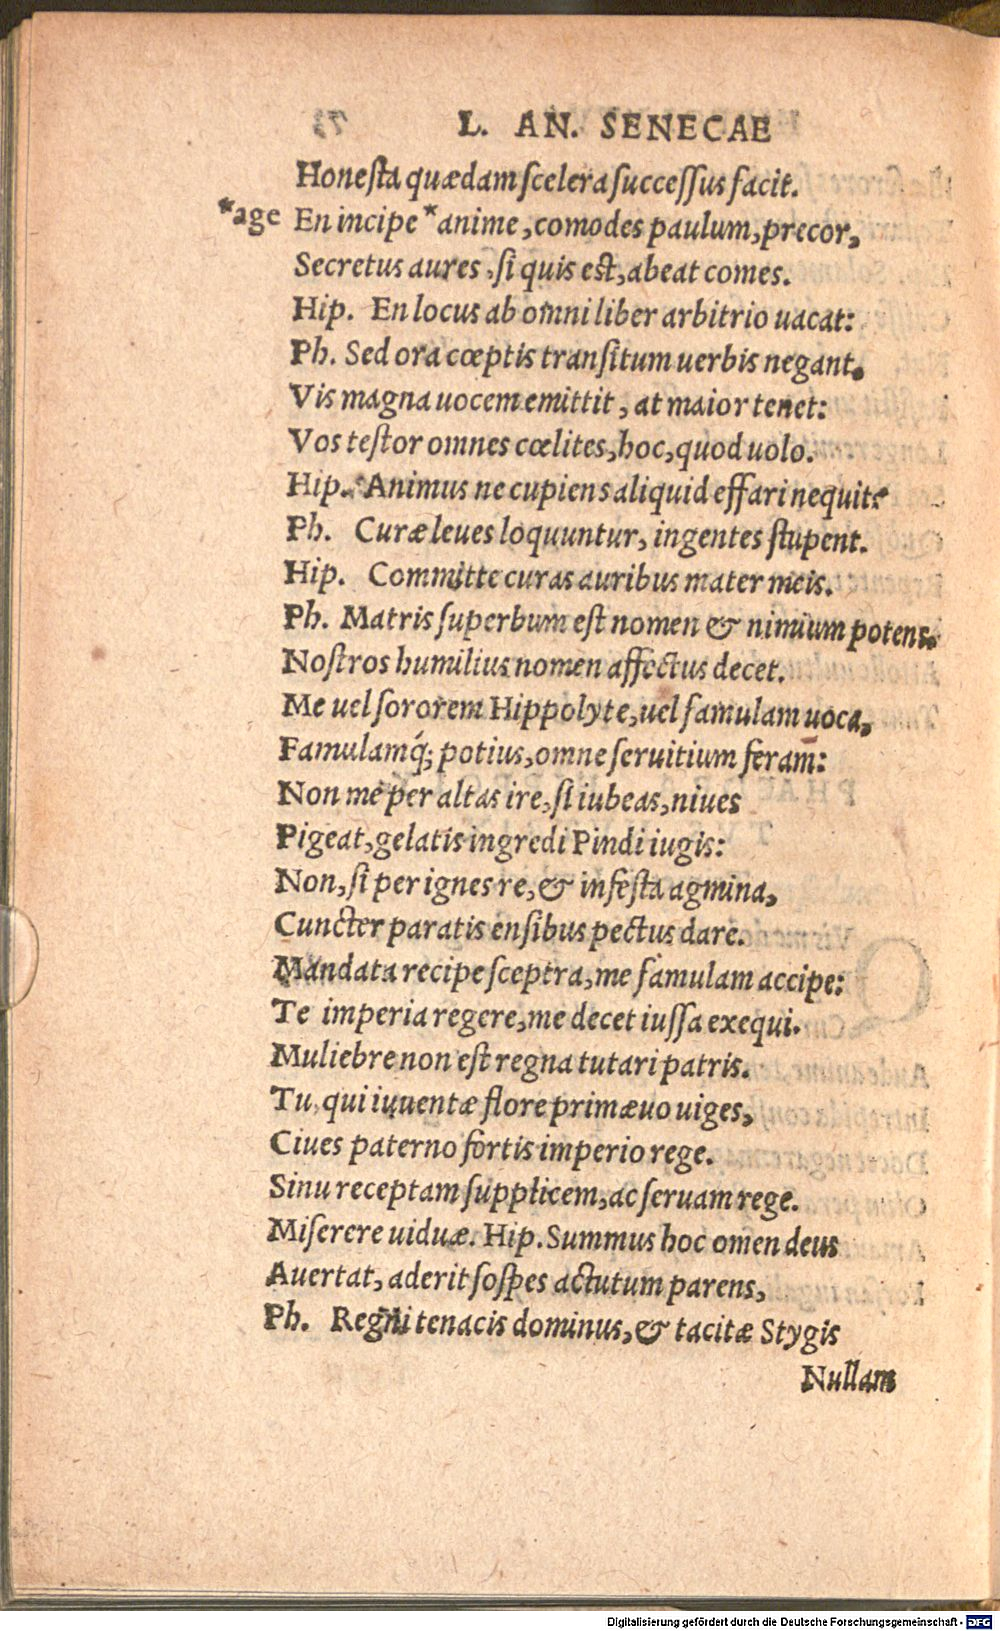 L. AN. SENECAE
Honesta quædam scelera successus facit.
*age En incipe *anime, comodes paulum, precor,
Secretus aures, si quis est, abeat comes.
Hip. En locus ab omni liber arbitrio uacat:
Ph. Sed ora cœptis transitum uerbis negant.
Vis magna uocem emittit, at maior tenet:
Vos testor omnes cœlites, hoc, quod uolo.
Hip. Animus ne cupiens aliquid effari nequit?
Ph. Curæ leues loquuntur, ingentes stupent.
Hip. Committe curas auribus mater meis.
Ph. Matris superbum est nomen & nimium potens.
Nostros humilius nomen affectus decet.
Me uel sororem Hippolyte, uel famulam uoca,
Famulamq́; potius, omne seruitium feram:
Non me per altas ire, si iubeas, niues
Pigeat, gelatis ingredi Pindi iugis:
Non, si per ignes re, & infesta agmina,
Cuncter paratis ensibus pectus dare.
Mandata recipe sceptra, me famulam accipe:
Te imperia regere, me decet iussa exequi.
Muliebre non est regna tutari patris.
Tu, qui iuuentæ flore primæuo uiges,
Ciues paterno fortis imperio rege.
Sinu receptam supplicem, ac seruam rege.
Miserere uiduæ. Hip. Summus hoc omen deus
Auertat, aderit sospes actutum parens,
Ph. Regni tenacis dominus, & tacitæ Stygis
Nullam
Digitalisierung gefördert durch die Deutsche Forschungsgemeinschaft - DFG